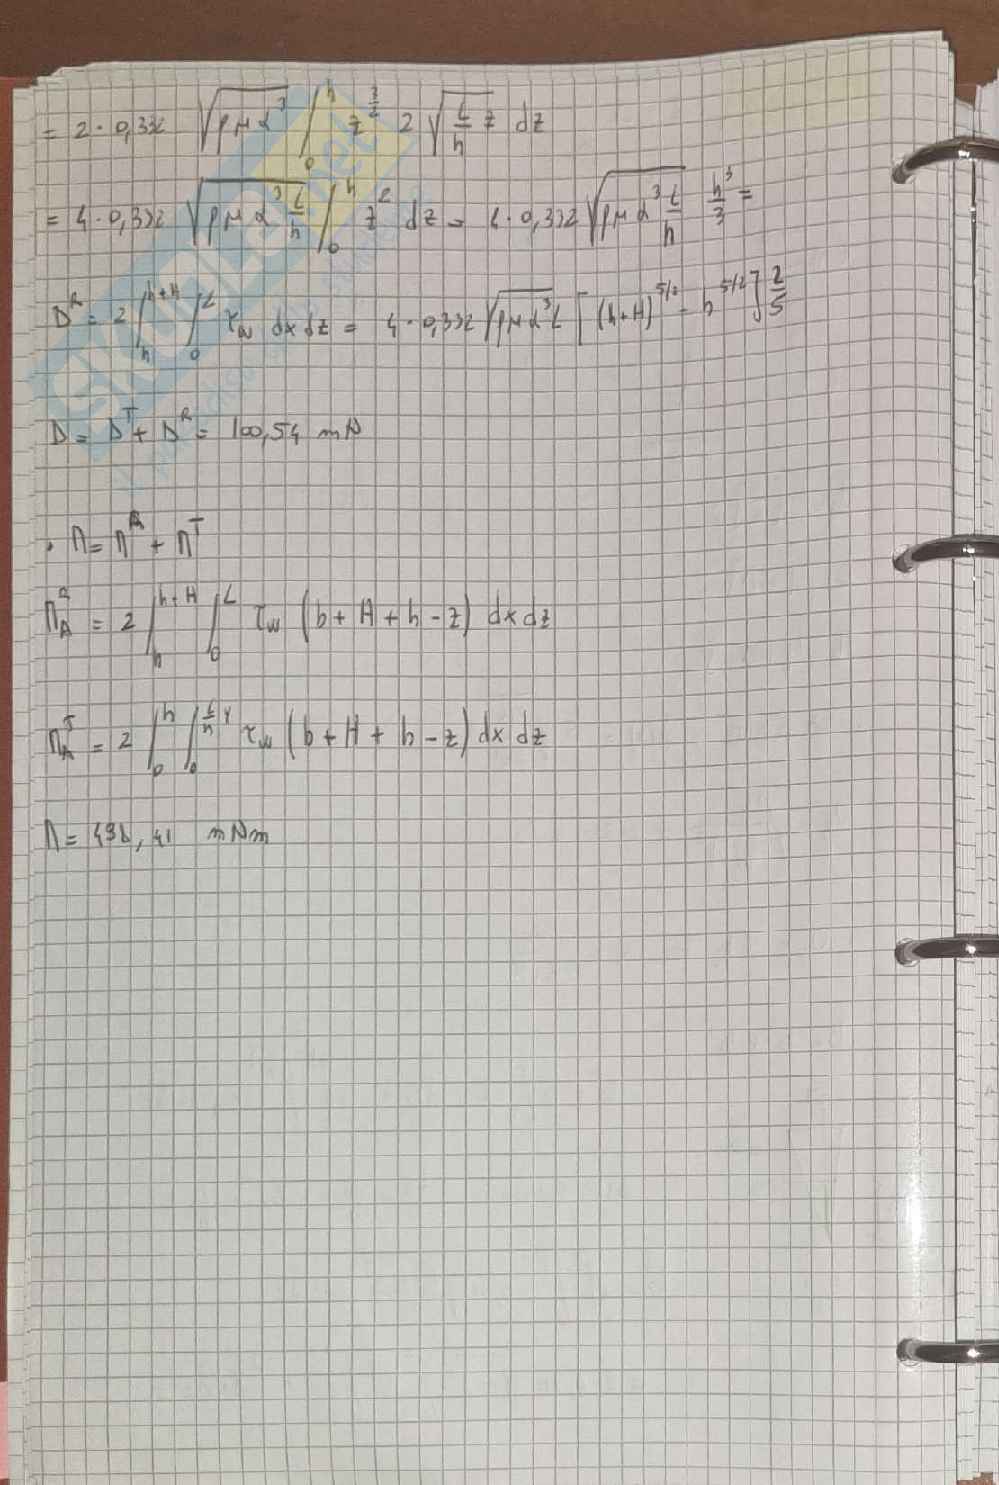 = 2 · 0,332 √(ρμα³) ∫₀ʰ z^(3/2) 2 √(L/h z) dz
= 4 · 0,332 √(ρμα³ L/h) ∫₀ʰ z² dz = 4 · 0,332 √(ρμα³ L/h) h³/3 =
Dᴿ = 2 ∫ₕʰ⁺ᴴ ∫₀ᴸ τw dx dz = 4 · 0,332 √(ρμα³L) [(h+H)^(5/2) - h^(5/2)] 2/5
D = Dᵀ + Dᴿ = 100,54 mN
· M = Mᴿ + Mᵀ
M_Aᴿ = 2 ∫ₕʰ⁺ᴴ ∫₀ᴸ τw (b + H + h - z) dx dz
M_Aᵀ = 2 ∫₀ʰ ∫₀^(L/h Y) τw (b + H + h - z) dx dz
M = mNm
SKUOLA.net